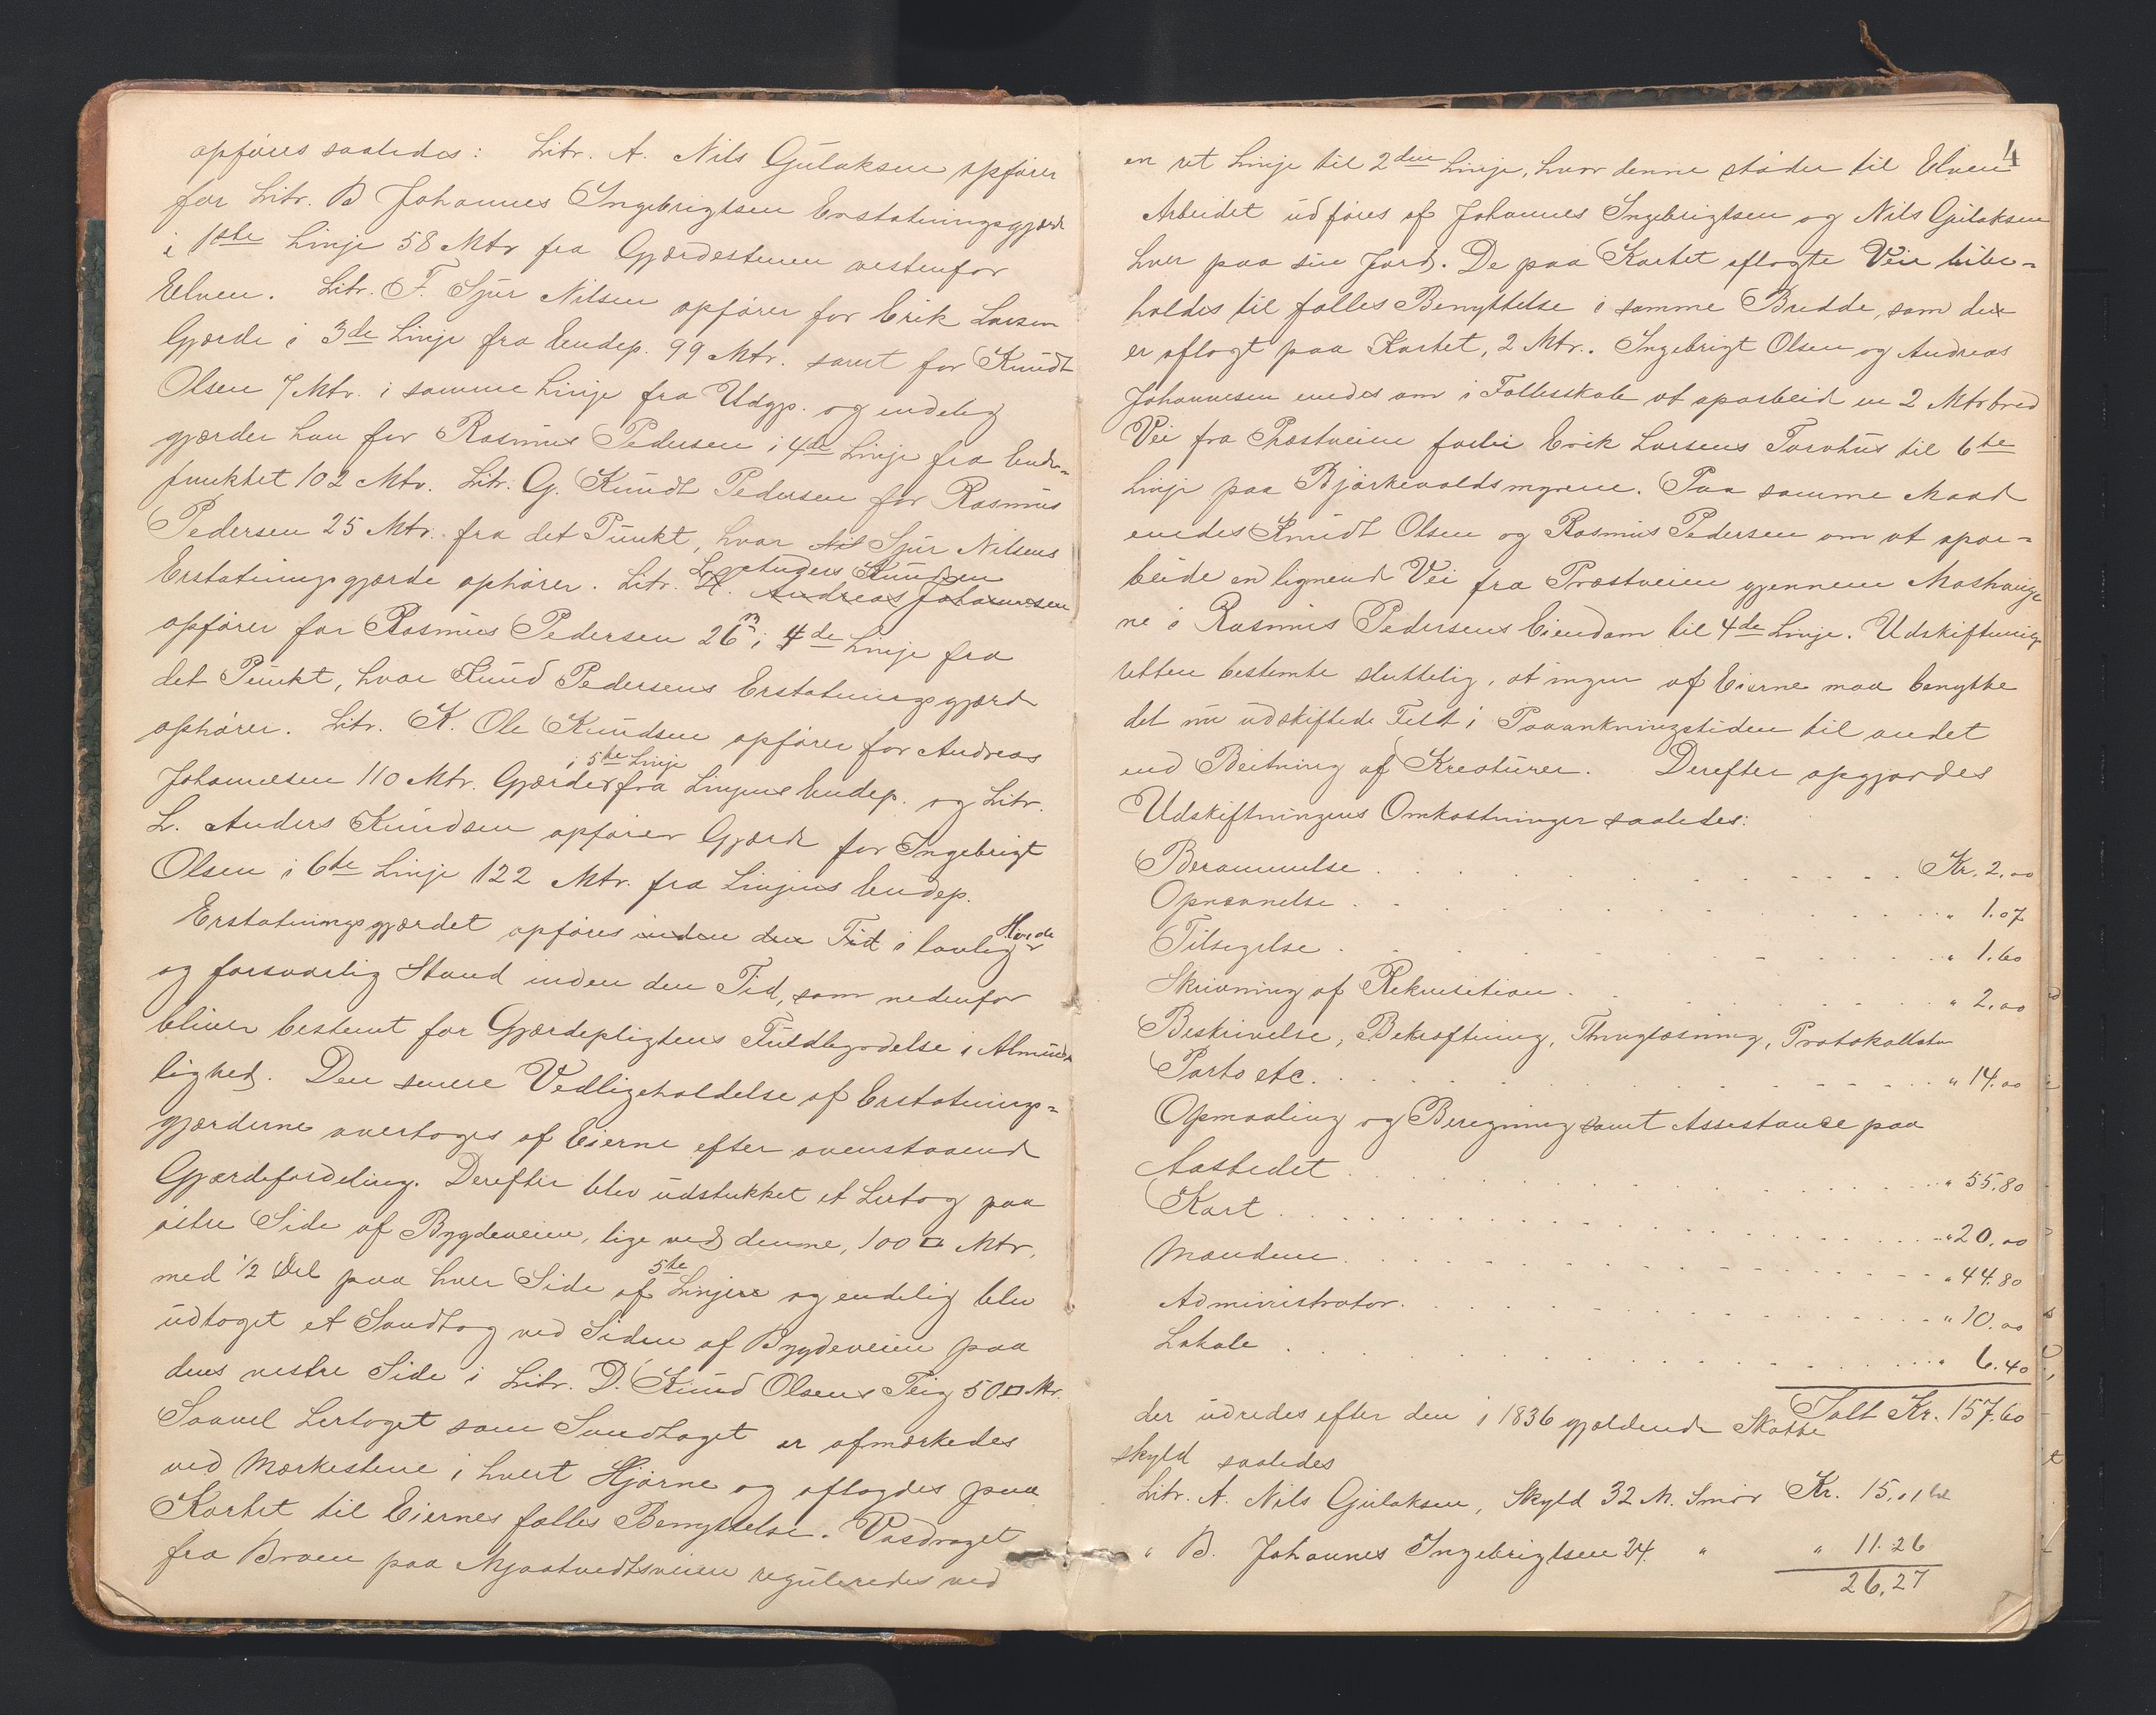 opføres saaledes: Litr. A. Nils Gulaksen opfører
for Litr. B Johannes Ingebrigtsen Erstatningsgjærde
i 1ste Linje 58 Mtr fra Gjærdestenen vestenfor
Elven. Litr. F. Sjur Nilsen opfører for Erik Larsen
Gjærde i 3de Linje fra Endep. 99 Mtr. samt for Knudt
Olsen 7 Mtr. i samme Linje fra Udgp. og endelig
gjærder han for Rasmus Pedersen i 4de Linje fra Ende-
punktet 102 Mtr. Litr. G. Knudt Pedersen for Rasmus
Pedersen 25 Mtr. fra det Punkt, hvor Nil Sjur Nilsens
L. Anders Knudsen
Erstatningsgjærde ophører. Litr. H. Andreas Johannesen
opfører for Rasmus Pedersen 26 m i 4de Linje fra
det Punkt, hvor Knud Pedersens Erstatningsgjærde
ophører. Litr. K. Ole Knudsen opfører for Andreas
i 5te Linje
Johannesen 110 Mtr. Gjærder fra Linjens Endep. og Litr.
L. Anders Knudsen opfører Gjærde for Ingebrigt
Olsen i 6te Linje 122 Mtr. fra Linjens Endep.
Erstatningsgjærdet opføres inden den Tid i lovlig Høide
og forsvarlig Stand inden den Tid, som nedenfor
bliver bestemt for Gjærdepligtens Fuldbyrdelse i Alminde-
lighed. Den senere Vedligeholdelse af Erstatnings-
gjærderne overtages af Eierne efter ovenstaaende
Gjærdefordeling. Derefter blev udstukket et Lertog paa
østre Side af Bygdeveien, lige ved denne, 100 □ Mtr,
5te
med 1/2 Del paa hver Side af Linjen og endelig blev
udtaget et Sandtag ved Siden af Bygdeveien paa
dens vestre Side i Litr. D. Knud Olsens Teig 50 □ Mtr.
Saavel Lertaget som Sandtaget er afmærkedes
ved Mærkestene i hvert Hjørne og aflagdes paa
Kartet til Eiernes fælles Benyttelse. Vasdraget
fra Broen paa Mjaatvedtsveien reguleredes ved
4
en ret Linje til 2den Linje, hvor denne støder til Elven
Arbeidet udføres af Johannes Ingebrigtsen og Nils Gulaksen
hver paa sin Jord. De paa Kartet aflagte Veie bibe-
holdes til fælles Benyttelse i samme Bredde, som der
er aflagt paa Kartet, 2 Mtr. Ingebrigt Olsen og Andreas
Johannesen enedes om i Fællesskab at oparbeide en 2 Mtr bred
Vei fra Præstveien forbi Erik Larsens Torvhus til 6te
Linje paa Bjørkevoldsmyrene. Paa samme Maade
enedes Knudt Olsen og Rasmus Pedersen om at opar-
beide en lignende Vei fra Præstveien gjennem Moshauge
ne i Rasmus Pedersens Eiendom til 4de Linje. Udskiftnings
retten bestemte sluttelig, at ingen af Eierne maa benytte
det nu udskiftede Felt i Paaankningstiden til andet
end Beitning af Kreaturer. Derefter opgjordes
Udskiftningens Omkostninger saaledes:
Berammelse . . . Kr. 2.00
Opnævnelse . . . " 1.07
Tilsigelse . . . " 1.60
Skrivning af Rekvisition . . . " 2.00
Beskrivelse, Bekræftning, Thinglæsning, Protokollatn
Porto etc. . . . " 14.00
Opmaaling og Beregning samt Assistance paa
Aastedet . . . " 55.80
Kart . . . " 20.00
Mændene . . . " 44.80
Administrator . . . " 10.00
Lokale . . . " 6.40
Talt Kr. 157.60
der udredes efter den i 1836 gjældende Skatte
skyld saaledes
Litr. A. Nils Gulaksen, Skyld 32 M. Smør Kr. 15.01
" B. Johannes Ingebrigtsen 24. " " 11.26
26.27